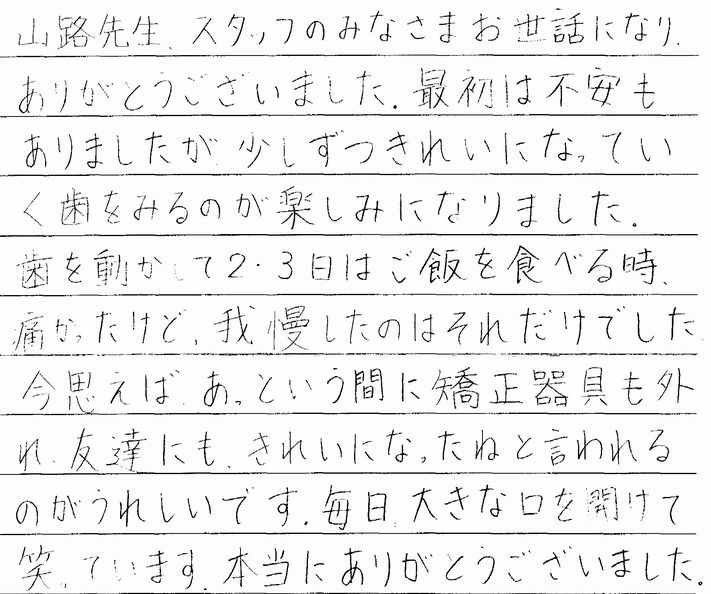 山路先生、スタッフのみなさまお世話になり、
ありがとうございました。最初は不安も
ありましたが、少しずつきれいになってい
く歯をみるのが楽しみになりました。
歯を動かして2・3日はご飯を食べる時、
痛かったけど、我慢したのはそれだけでした。
今思えば、あっという間に矯正器具も外
れ、友達にも、きれいになったねと言われる
のがうれしいです。毎日、大きな口を開けて
笑っています。本当にありがとうございました。